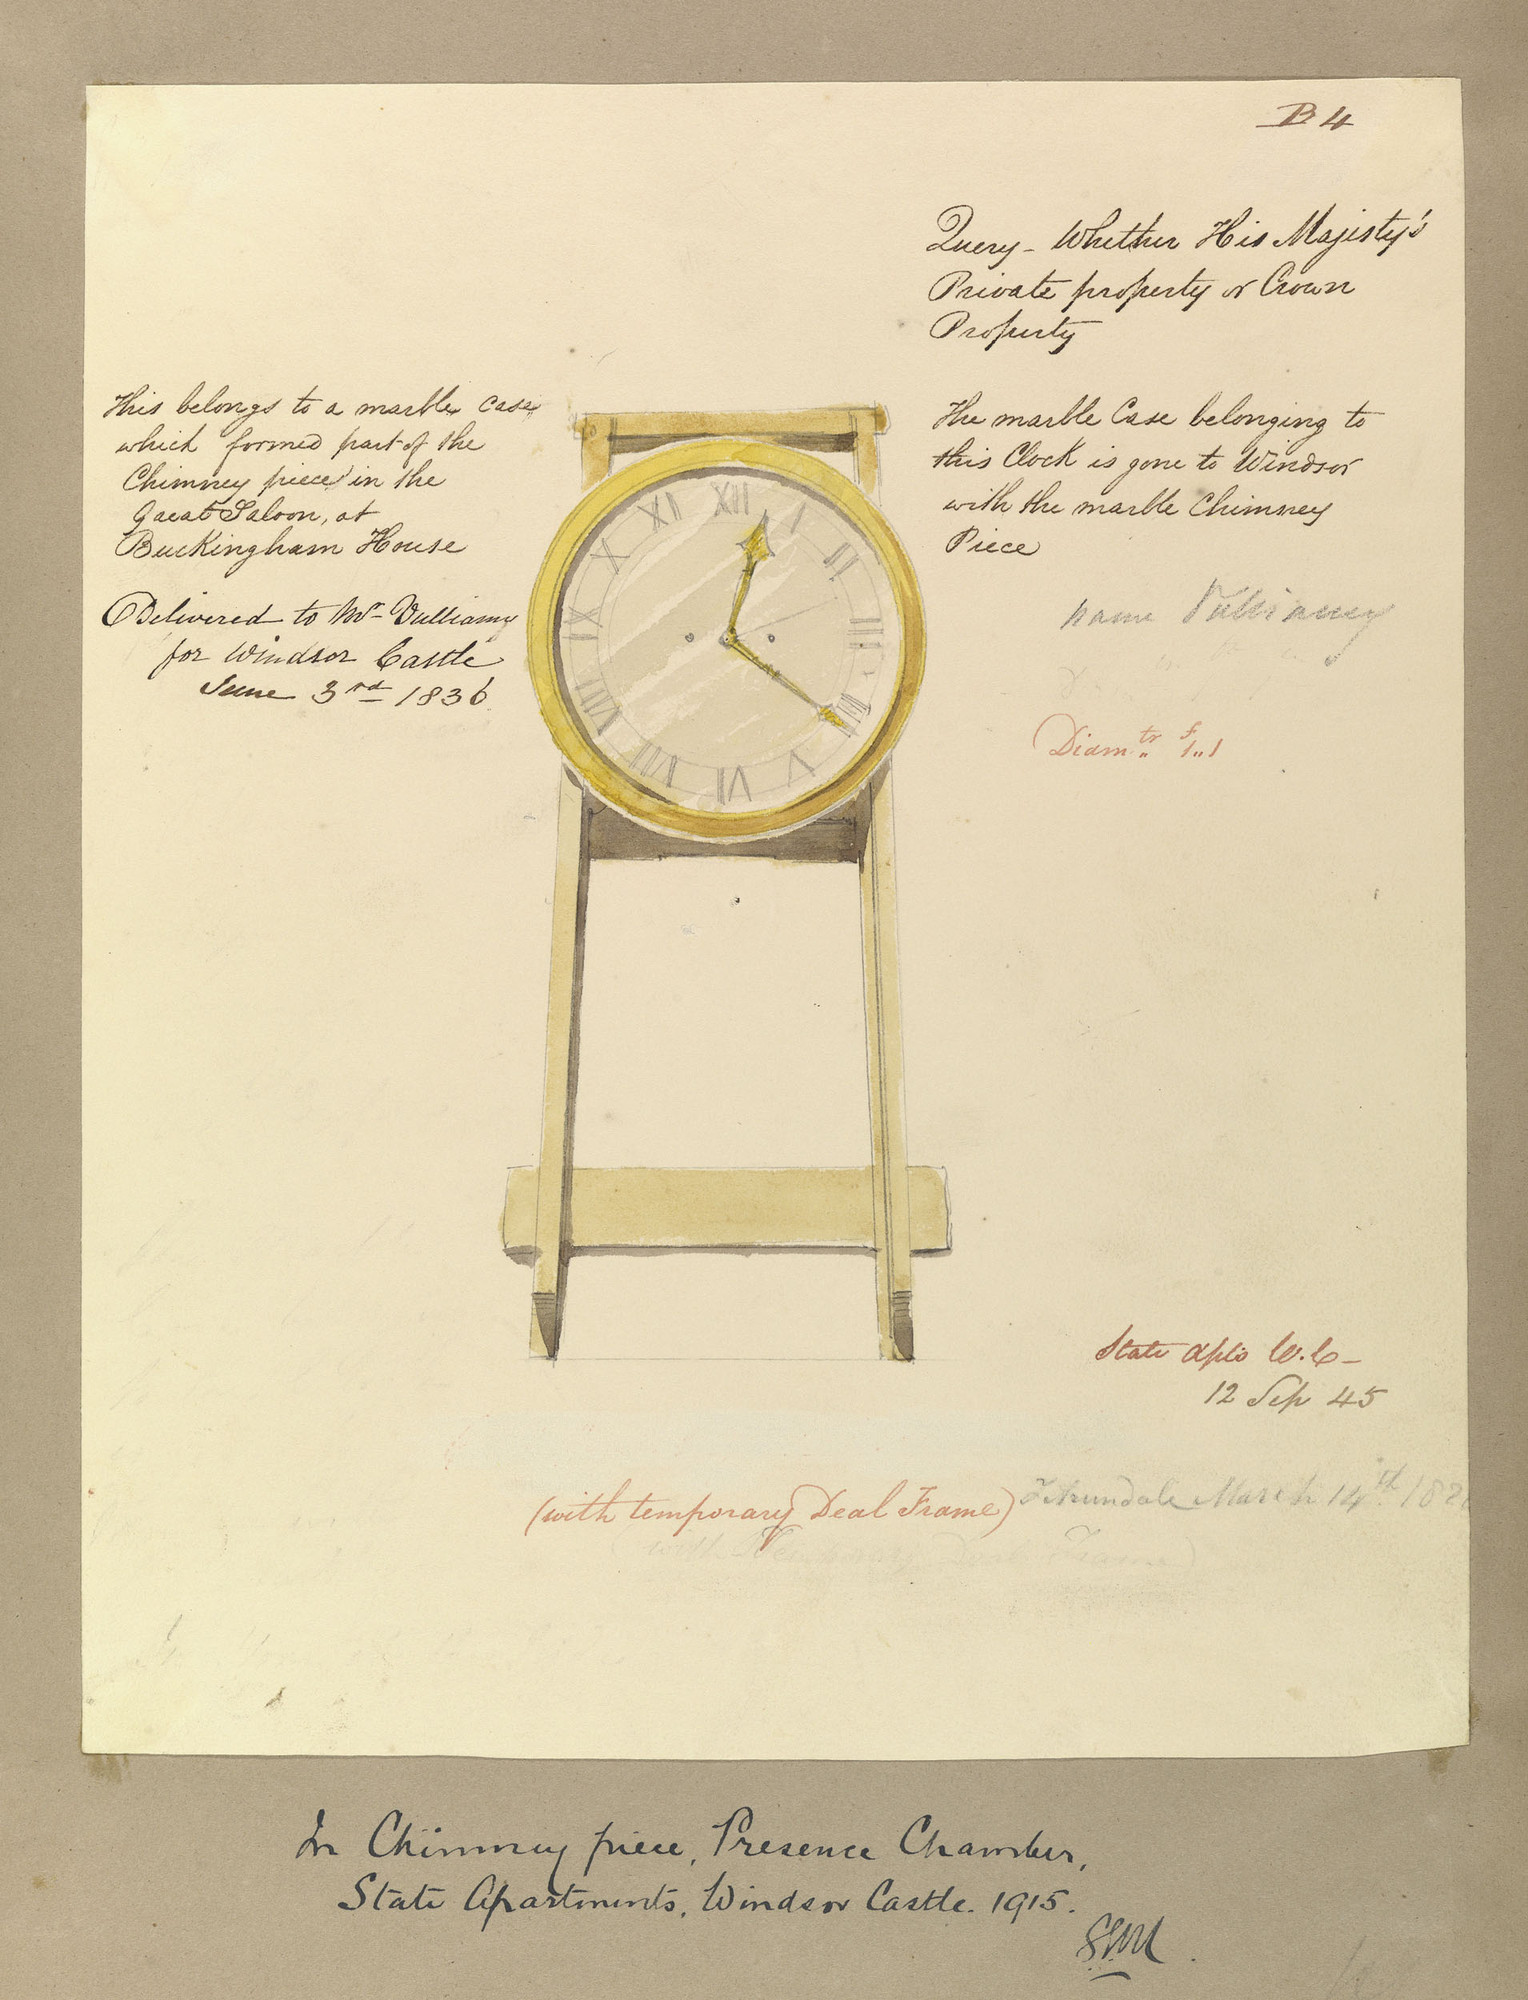 B 4
Query - Whether His Majisty's
Private property or Crown
Property
This belongs to a marble Case
which formed part of the
Chimney piece in the
Great Saloon, at
Buckingham House
Delivered to Mr Vulliamy
for Windsor Castle
June 3rd 1836
The marble Case belonging to
this Clock is gone to Windsor
with the marble Chimney
Piece
name Vulliamy
Diamtr f 1,,1
XII
I
II
III
IIII
V
VI
VII
VIII
IX
X
XI
State Apts W.C -
12 Sep 45
(with temporary Deal Frame)
March 14th
(with Temporary Deal Frame)
In Chimney piece, Presence Chamber,
State Apartments, Windsor Castle. 1915.